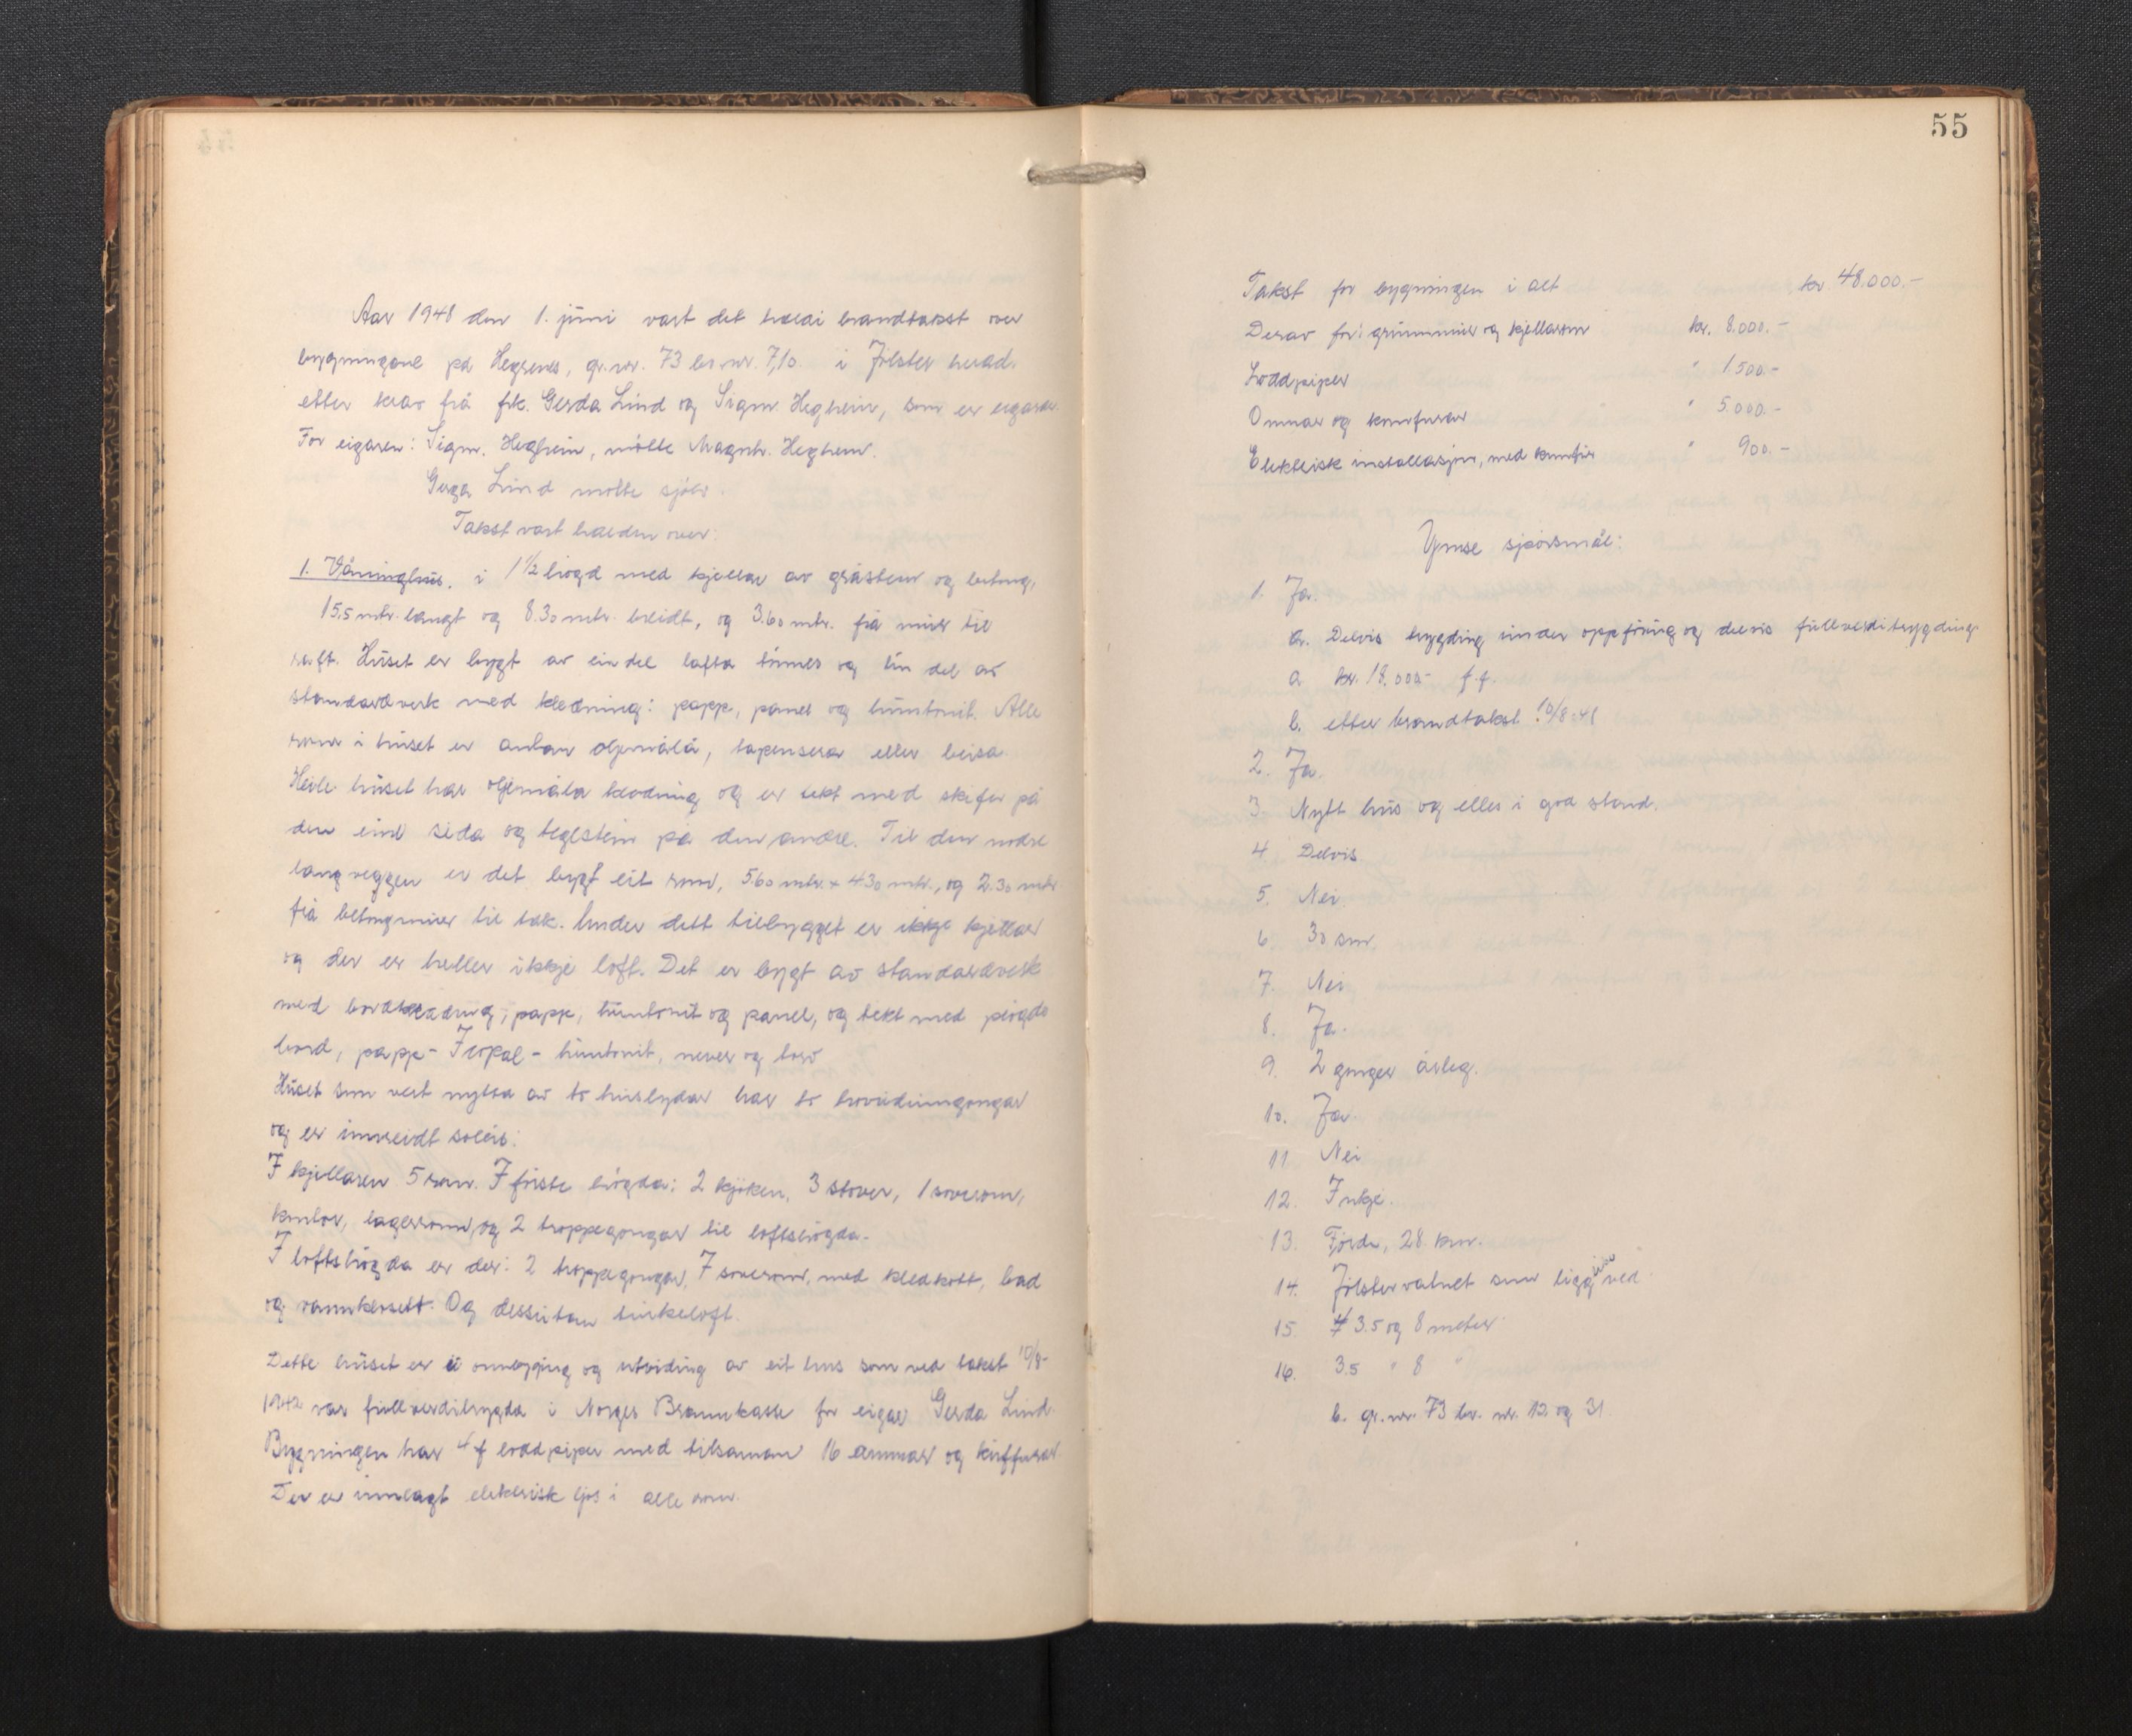 Aar 1948 den 1. júni vart det haldi brandtakst over
bygningane på Hegrenes, gr.nr. 73 br.nr. 7,10. i Jølster herad.
etter krav frå frk. Gerda Lind og Sigm. Heghein, som er eigarar.
For eigaren: Sigm. Heghein, møtte Magnh. Heghein.
Gerda Lind møtte sjølv.
Takst vart halden over:
1. Våninghús. i 1 1/2 høgd med kjellar av gråstein og betong,
15.5 mtr. langt og 8.30 mtr. breidt, og 3.60 mtr. frå múr til
raft. Húset er bygt av ein del lafta tømer og ein del av
standardverk med kledning: papp, panel og húntonit. Alle
rom i húset er anten oljemåla, tapensera eller beisa.
Heile húset har oljemåla kledning og er tekt med skifer på
den eine sida og teglstein på den andre. Til den nordre
langveggen er det bygt eit rom, 5.60 mtr. x 4.30 mtr., og 2.30 mtr
frå betongmúr til tak. Under dett tilbygget er ikkje kjellar
og der er heller ikkje loft. Det er bygt av standardverk
med bordkledning, papp, húntonit og panel, og tekt med pløgde
bord, papp - Isopal - húntonit, never og torv
Húset som vert nytta av to húslydar har to hovudinngongar
og er innreidt soleis:
I kjellaren 5 rom. I første høgda: 2 kjøken, 3 stover, 1 soverom,
kontor, lagerrom, og 2 troppegongar til loftshøgda.
I loftshøgda er der: 2 troppegongar, 7 soverom, med kledkott, bad
og vannklosett. Og dessutan túrkeloft.
Dette húset er ei ombygging og utviding av eit hus som ved takst 10/8-
1942 var fúllverditrygda i Norges Brannkasse for eigar Gerda Lind.
Bygningen har 4 loddpiper med tilsaman 16 omnar og komfurar.
Der er innlagt elektrisk ljos i alle rom.
55
Takst for bygningen i alt kr. 48.000.-
Derav for: grúnnmúr og kjellarrom kr. 8.000.-
Loddpiper " 1.500.-
Omnar og komfurar " 5.000.-
Elektrisk installasjon, med komfúr " 900.-
Ymse spørsmål:
1. Ja.
a. Delvis trygding únder oppføring og delvis fúllverditrygding.
a kr. 18.000.- f.f.
b. etter brandtakst 10/8-41
2. Ja.
3. Nytt hús og elles i god stand.
4. Delvis.
5. Nei.
6. 30 sm.
7. Nei
8. Ja.
9. 2 gonger årleg.
10. Ja.
11. Nei
12. Inkje.
13. Førde, 28 km.
14. Jølstervatnet som ligg ved.
15. 3.5 og 8 meter.
16. 3.5 " 8 "
b. gr.nr. 73 br. nr. 12 og 31